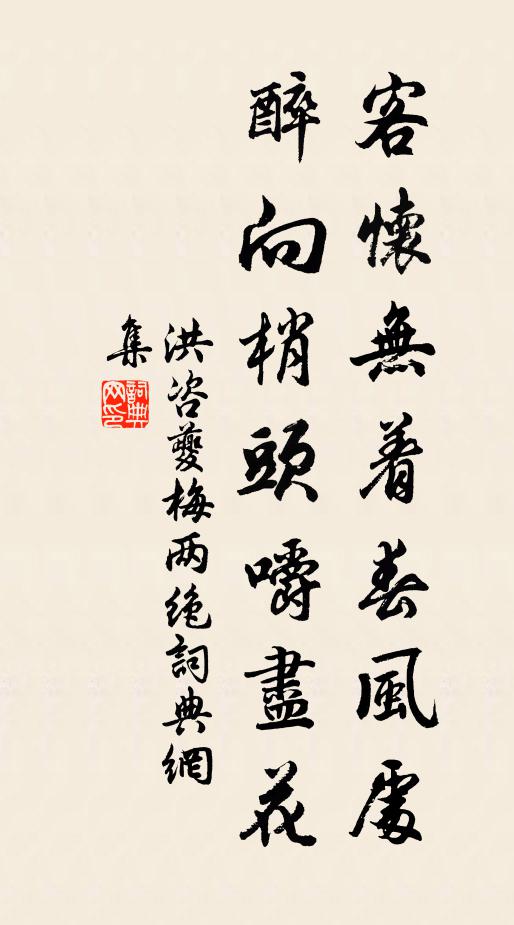 客懷無着春風處
醉向梢頭嚼盡花
洪咨夔梅两絶詞典網
集
詞典
网印